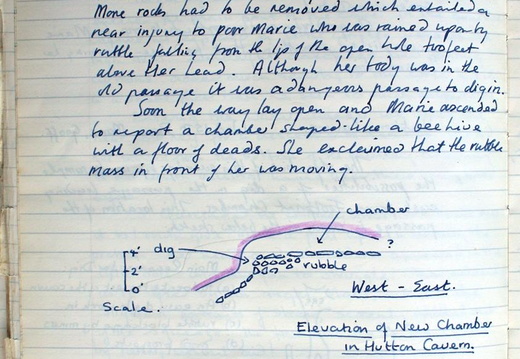 More rocks had to be removed which entailed a
near injury to poor Marie who was rained upon by
rubble falling from the lip of the open hole two feet
above her head. Although her body was in the
old passage it was a dangerous passage to dig in.
Soon the way lay open and Marie ascended
to report a chamber shaped like a beehive
with a floor of deads. She exclaimed that the rubble
mass in front of her was moving.
chamber
dig
?
4'
2'
0'
rubble
Scale.
West - East.
Elevation of New Chamber
in Hutton Cavern.